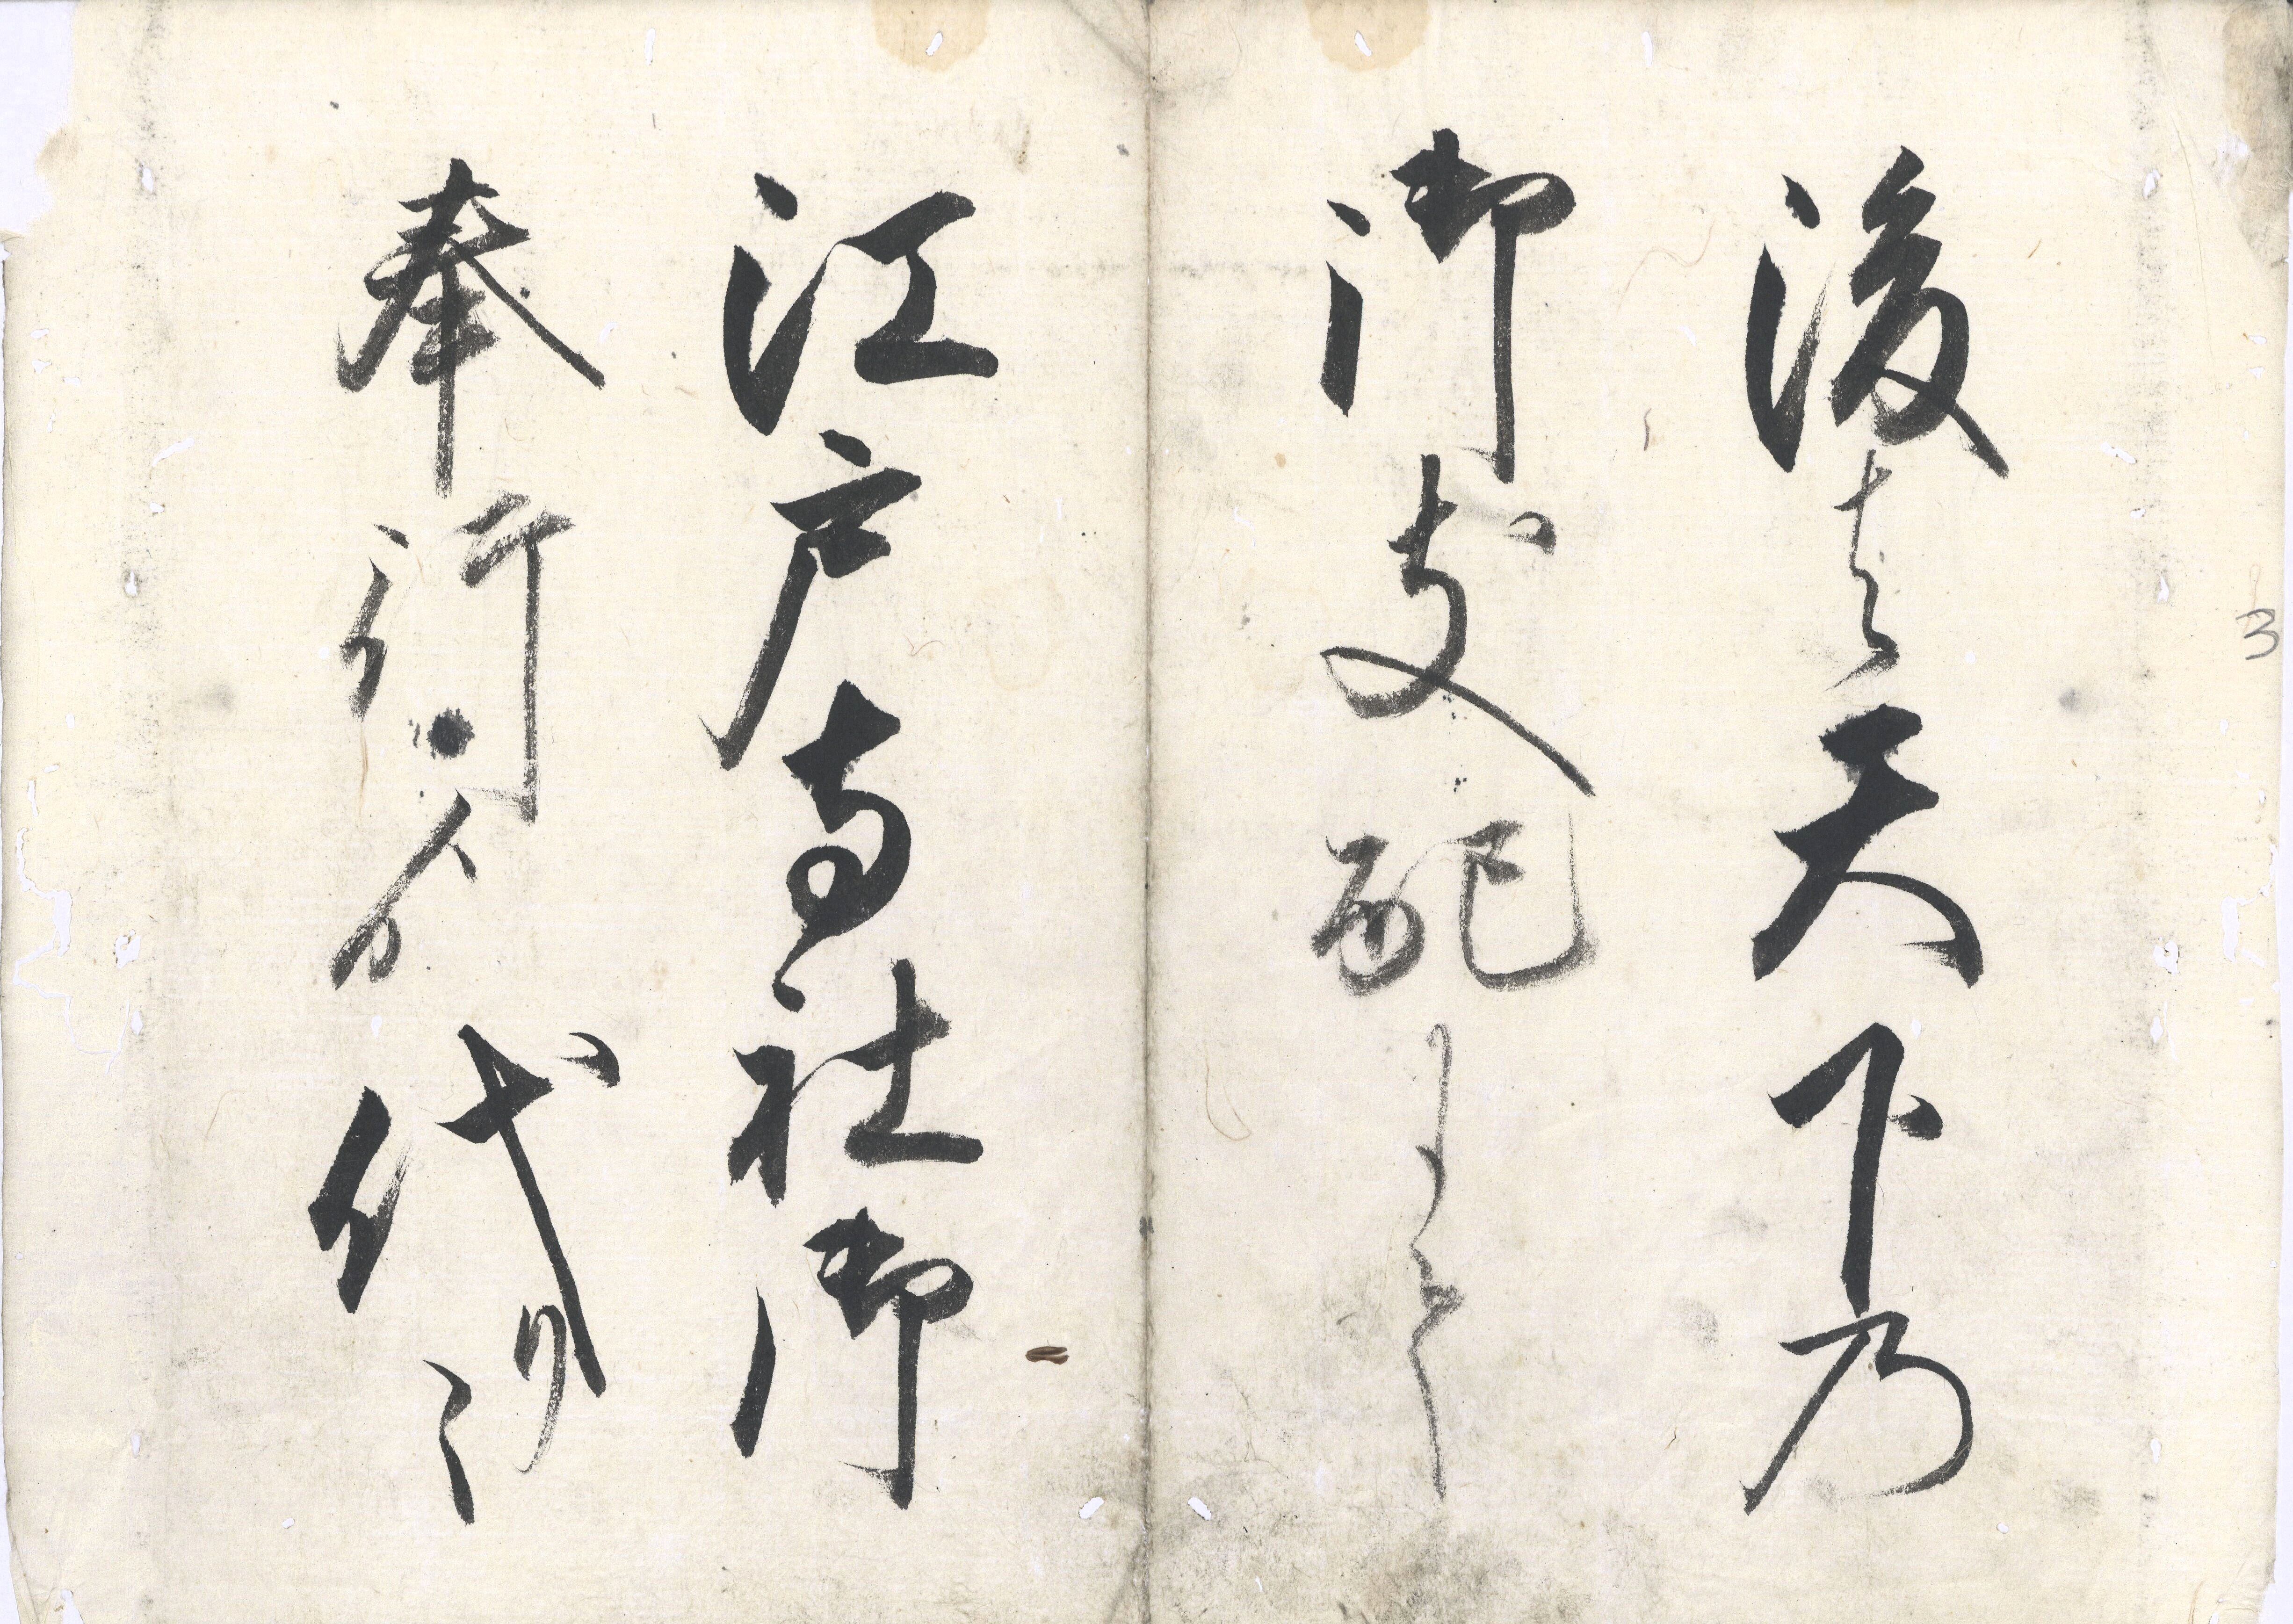 後者天下乃
御支配
江戸寺社御
奉行分代り
3